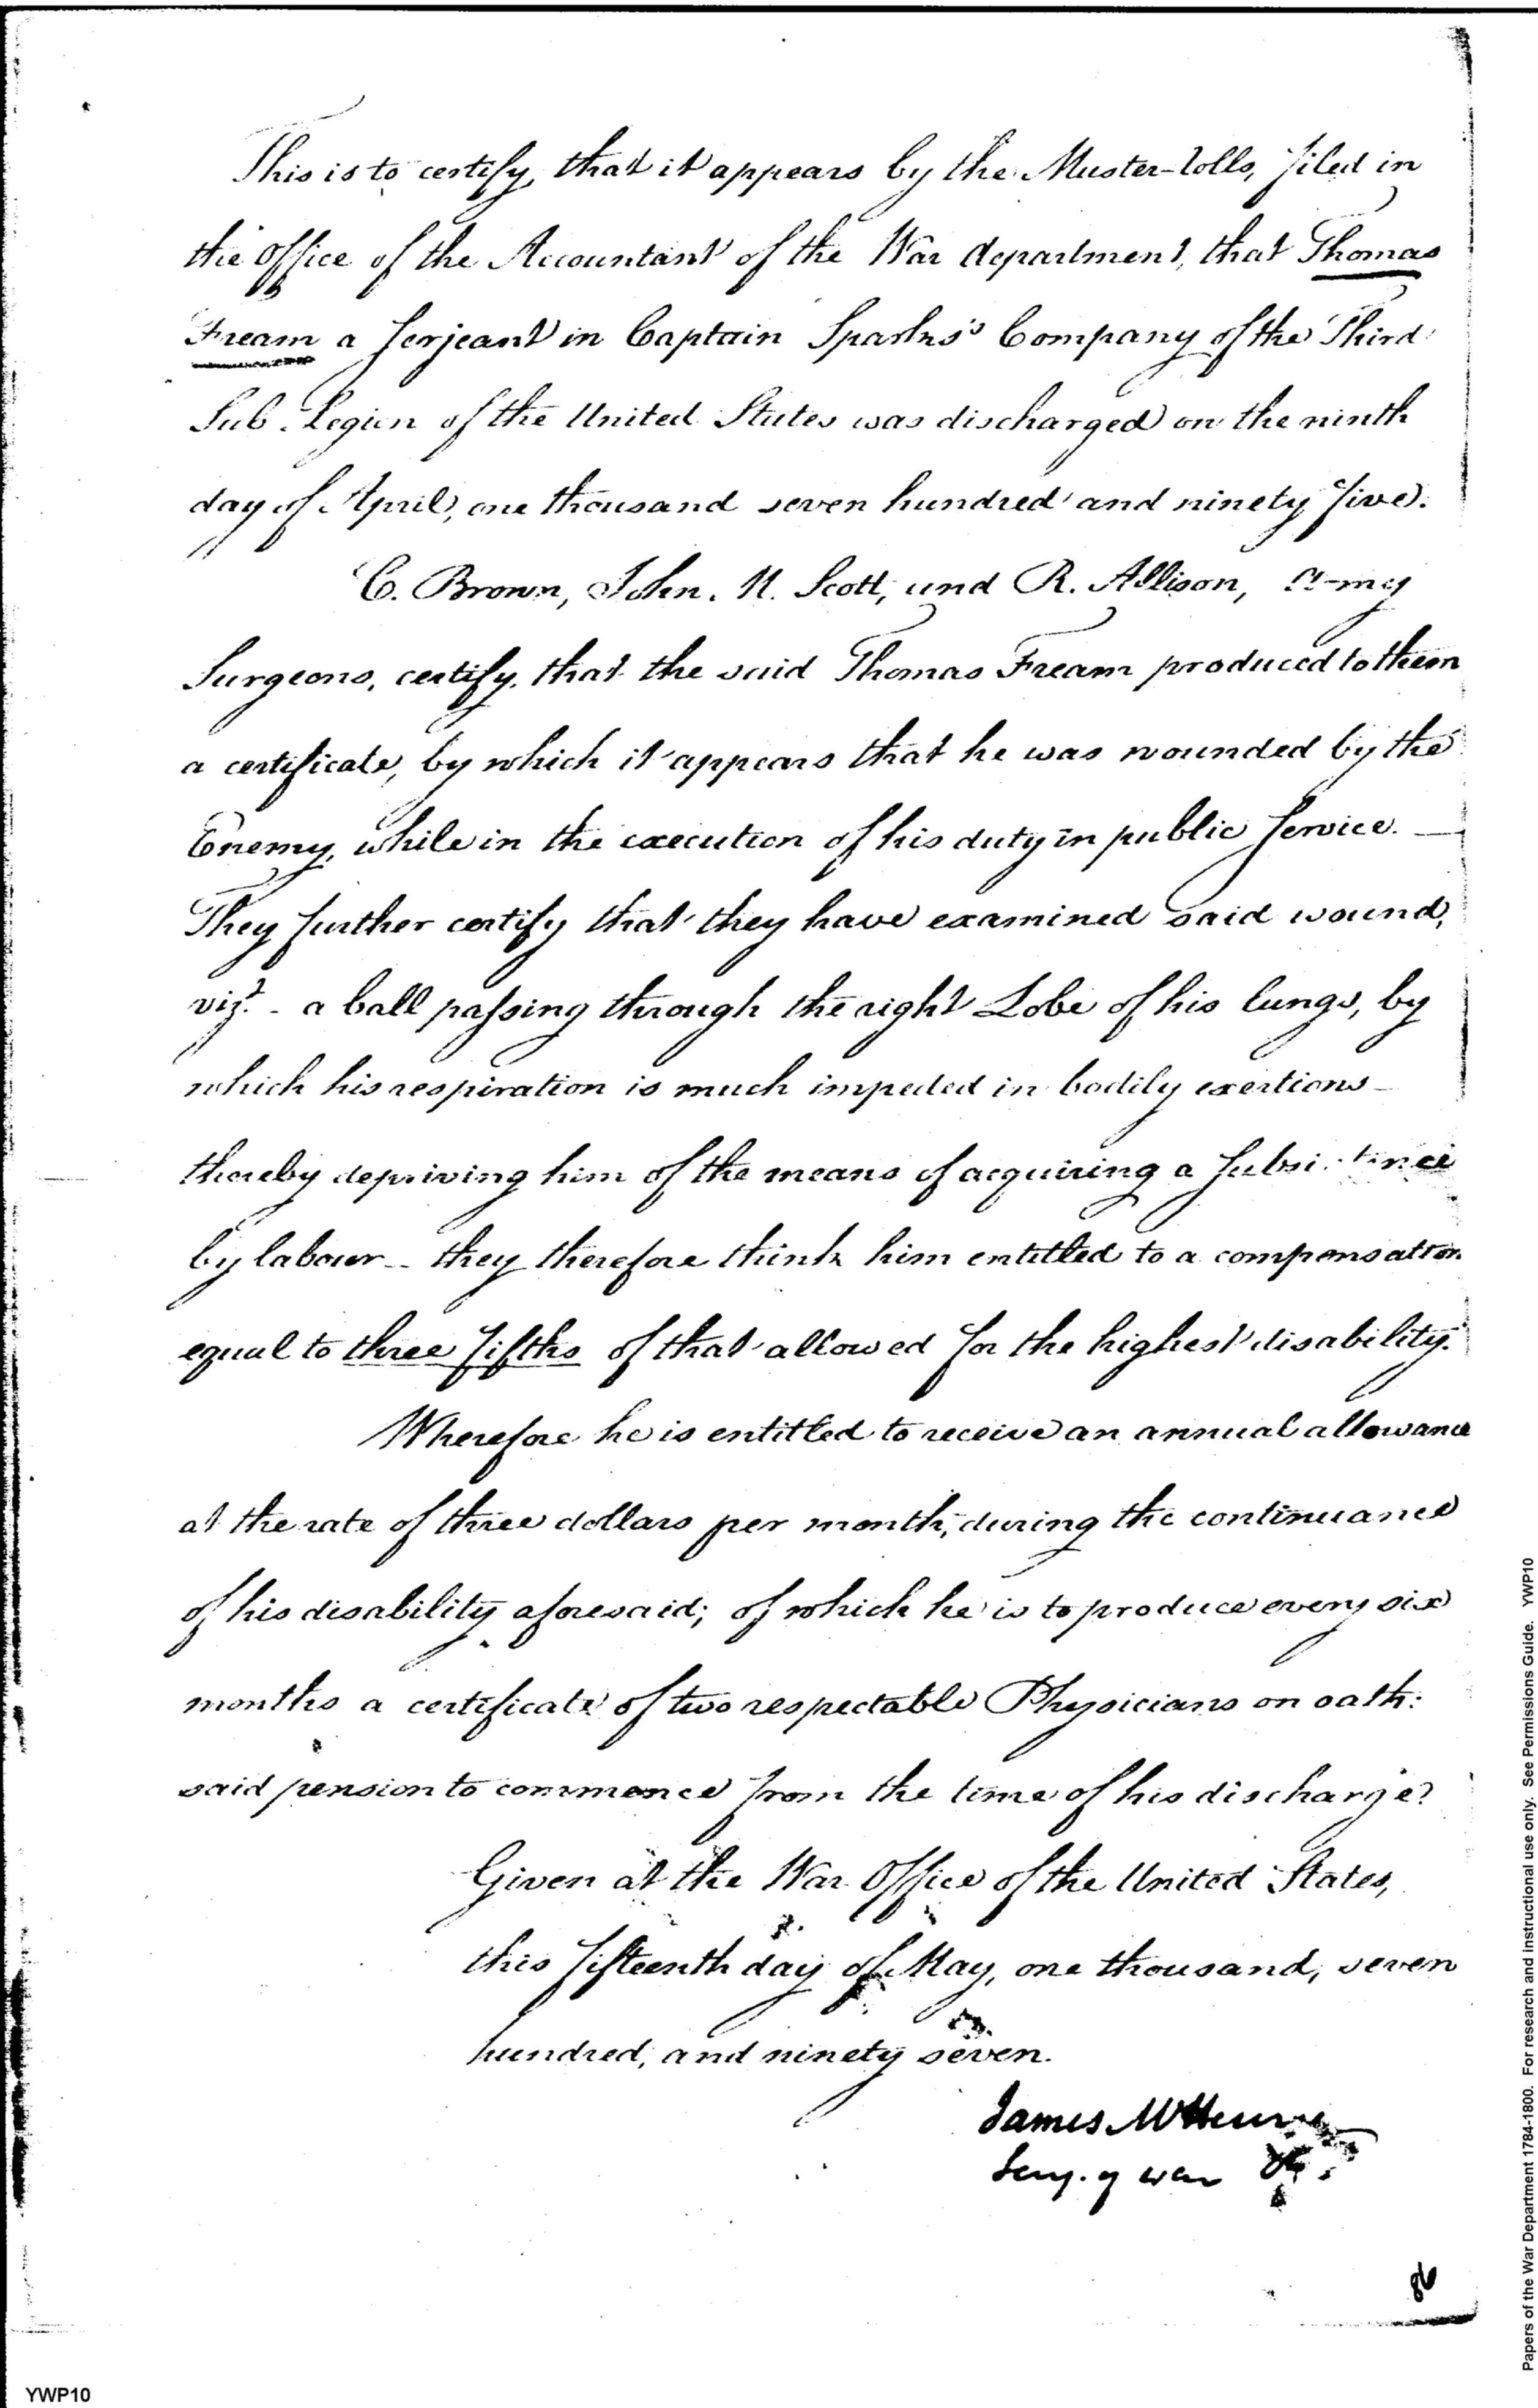 This is to certify, that it appears by the Muster-rolls, filed in
the Office of the Accountant of the War department, that Thomas
Fream a Serjeant in Captain Sparks's Company of the Third
Sub-Legion of the United States was discharged on the ninth
day of April, one thousand seven hundred and ninety five.
C. Brown, John. M. Scott, and R. Allison, Army
Surgeons, certify, that the said Thomas Fream produced to them
a certificate, by which it appears that he was wounded by the
Enemy, while in the execution of his duty in public Service. —
They further certify that they have examined said wound,
vizt. - a ball passing through the right Lobe of his lungs, by
which his respiration is much impeded in bodily exertions -
thereby depriving him of the means of acquiring a Subsistence
by labour - they therefore think him entitled to a compensation
equal to three fifths of that allowed for the highest disability.
Wherefore he is entitled to receive an annual allowance
at the rate of three dollars per month, during the continuance
of his disability aforesaid; of which he is to produce every six
months a certificate of two respectable Physicians on oath:
said pension to commence from the time of his discharge.
Given at the War Office of the United States,
this fifteenth day of May, one thousand, seven
hundred, and ninety seven.
James McHenry
Secy. of war
Papers of the War Department 1784-1800. For research and instructional use only. See Permissions Guide. YWP10
YWP10